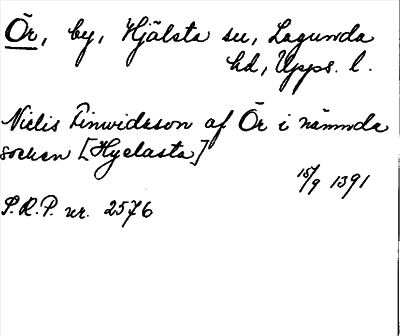 Ör, by, Hjälsta sn, Lagunda
hd, Upps. l.
Niclis Finwidsson af Ör i nämnda
socken [Hyelasta]
15/9 1391
P.R.P. nr. 2576